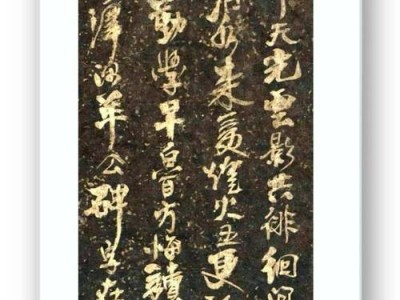 天光雲影共徘徊
水來三更燈火五更
勤學早白首方悔讀
澤深羊公碑字在